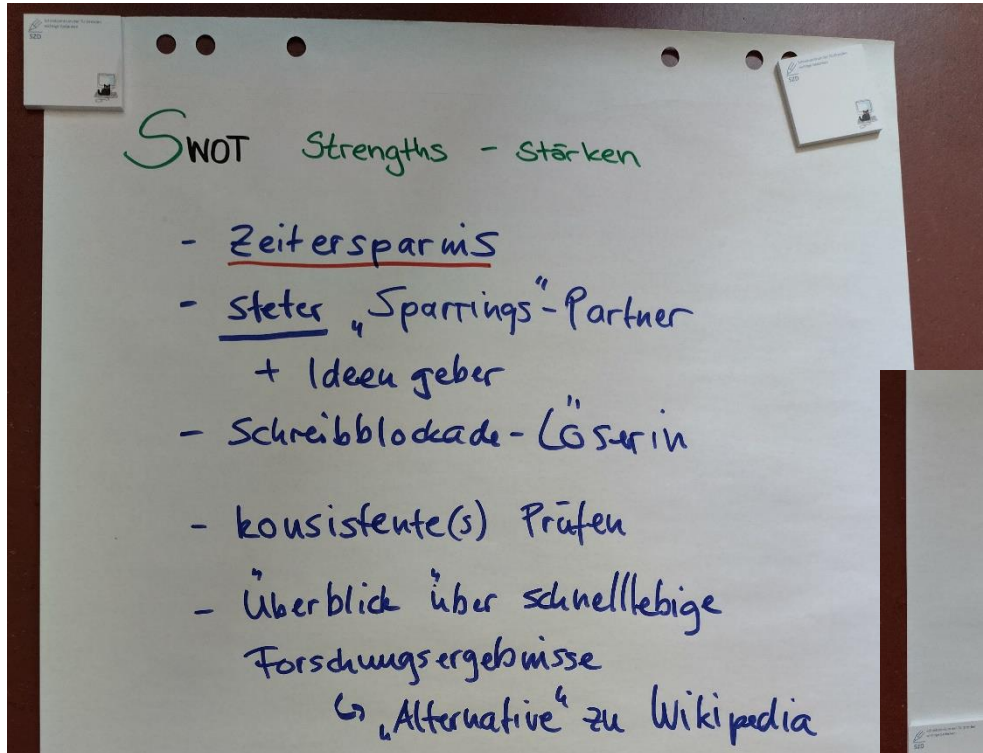 SWOT Strengths - Stärken
- Zeitersparnis
- steter „Sparrings"-Partner
+ Ideengeber
- Schreibblockade-Löserin
- konsistente(s) Prüfen
- Überblick über schnelllebige
Forschungsergebnisse
↳ „Alternative" zu Wikipedia
SZD
SZD
SZD